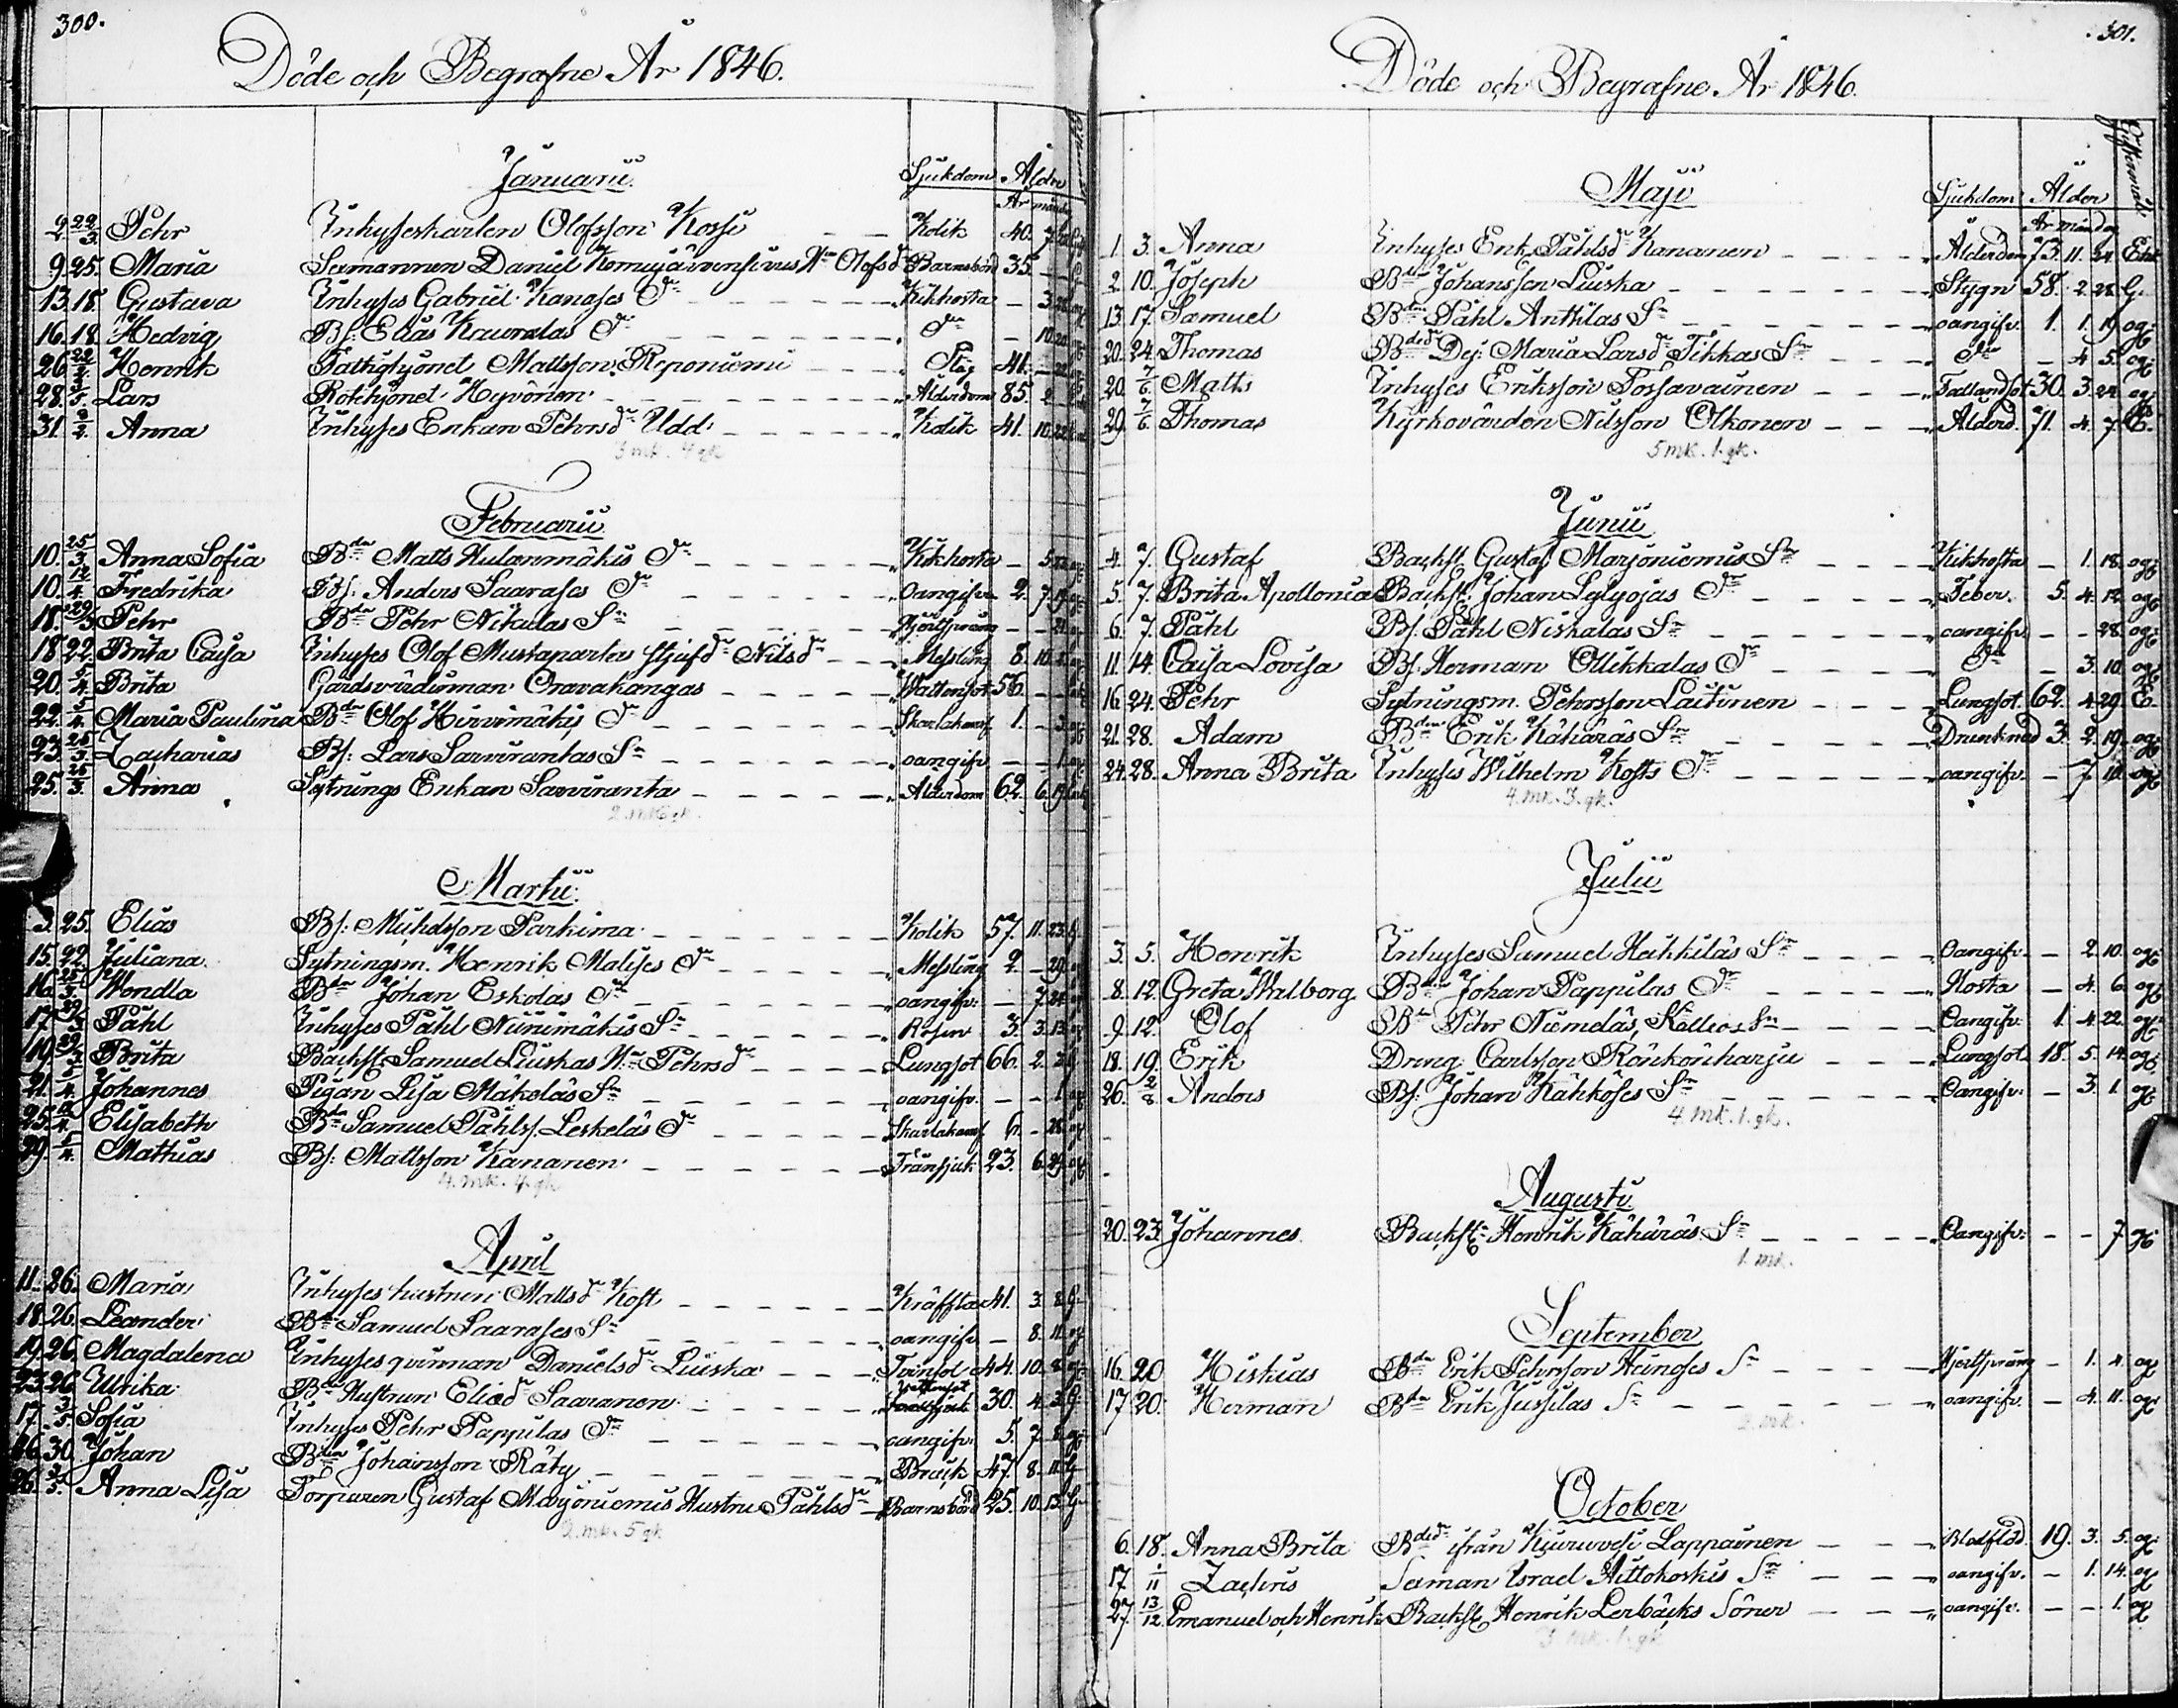 300.
Döde och Begrafne År 1846.
Januarii
Sjukdom Ålder
År månder
2 22/3 Pehr Inhyseskarlen Olofsson Kossi Kolik 40. 7
9 25. Maria Sexmannen Daniel Kemijärvensivus H:u Olofsd:r Barnsbörd 35.
13. 18. Gustava Inhyses Gabriel Kangses D:r Kikhosta 3
16. 18. Hedvig Bs: Elias Kauralas D:r D:o 10
26 Henrik Fattighjonet Mattsson Reponiemi Slag 41.
28. Lars Rotehjonet Hyvönen Ålderdom 85. 2
31. 2/2. Anna Inhyses Enkan Pehrsd:r Udd Kolik 41. 10. 22
3 mk. 4 qk
Februarii
10. 25/3 Anna Sofia B:den Matts Hulanmäkis D:r Kikhosta 5
10. 12/4 Fredrika Bs: Anders Saarases D:r Oangifv. 2. 7. 19.
18. 29/3 Pehr B:dn Pehr Nikulas S:n Hjertsprång 21
18 22. Brita Caisa Inhyses Olof Mustaparta stjufd:r Nilsd:r Messling 8. 10.
20. 5/4 Brita Gårdsvärdinnan Oravakangas Wattensot 56.
22. 5/4. Maria Paulina B:dn Olof Hirvimäkis D:r Skarlakansf 1. 3
23. 25/3. Zacharias Bs: Lars Savirantas S:n oangifv. 1.
25. 25/3. Anna Sytnings Enkan Saviranta Ålderdom 62. 6. 19. Enk
2. mk 6 qk.
Martii.
3. 25. Elias Bs: Michelsson Parkima Kolik 57. 11. 23. G.
15. 22. Juliana Sytningsm. Henrik Malises D:r Messling 2. 29.
16. 25/3. Wendla B:dn Johan Eskolas D:r oangifv. 7. 21.
17. 29/3 Påhl Inhyses Påhl Niinimäkis S:n Rosen 3. 3. 13.
19. 29/3 Brita Backst. Samuel Liuskas H:u Pehrsd:r Lungsot 66. 2. 3. G
21. 5/4. Johannes Pigan Lisa Mäkeläs S:n oangifv. 1.
25. Elisabeth B:dn Samuel Påhlss. Leskeläs D:r Skarlakansf 6. 28.
29. 5/4. Mathias Bs: Mattsson Kananen Trånsjuk 23. 6. 29. og
4. mk. 4. qk
April
11. 26. Maria Inhyses hustrun Mattsd:r Koft Kräfta 41. 3. 8. G.
18. 26. Leander B:dn Samuel Saarases S:n oangifv. 8. 11. og
19. 26. Magdalena Inhyses qvinnan Danielsd:r Liuska Tvinsot 44. 10. 8.
23. 26 Ulrika B:de Hustrun Eliæd:r Saaranen Wattensot 30. 4. 3. G.
17. 3/5 Sofia Inhyses Pehr Pappilas D:r oangifv. 5. 7. 8.
26. 30. Johan B:den Johansson Räty Bråck 47. 8. 11. G
26. 3/5. Anna Lisa Torparen Gustaf Marjoniemis Hustru Påhlsd:r Barnsbörd 25. 10. 13. G.
2. mk. 5 qk
301.
Döde och Begrafne År 1846.
Maji
Sjukdom Ålder Giftermål
År månder
1. 3. Anna Inhyses Enk. Påhlsd:r Kananen Ålderdom 73. 11. 24. Enk
2. 10. Joseph B:den Johansson Liuska Stygn 58. 2. 28. G.
13. 17. Samuel B:den Påhl Anttilas S:n oangifv. 1. 1. 19. og.
20. 24. Thomas B:ded:r Dej: Maria Larsd:r Tikkas S:n D:o 4 5. og
20. 7/6 Matts Inhyses Eriksson Torsavainen Fallandsot 30. 3. 24. og
29. 7/6 Thomas Kyrkovärden Nilsson Olkonen Ålderd. 71. 4. 7. E.
5 mk. 1. qk.
Junii
4. 7. Gustaf Backst. Gustaf Marjoniemis S:n Kikhosta 1. 18. og
5. 7. Brita Apollonia Backst. Johan Lylyojas D:r Feber. 5. 4. 12. og
6. 7. Påhl Bs: Påhl Niskalas S:n oangifv. 28. og
11. 14. Caisa Lovisa Bs: Herman Ollikkalas D:r D:o 3. 10. og
16 24. Pehr Sytningsm. Pehrsson Laitinen Lungsot. 62. 4. 29. E.
21. 28. Adam B:den Erik Käháräs S:n Drunknad 3. 2. 19. og
24. 28. Anna Brita Inhyses Wilhelm Kofts D:r oangifv. 7. 10. og
4. mk. 3. qk.
Julii
3. 5. Henrik Inhyses Samuel Heikkiläs S:n Oangifv. 2. 10. og
8. 12. Greta Walborg B:dn Johan Pappilas D:r Hosta 4. 6. og
9. 12. Olof B:dn Pehr Niemeläs, Kallios S:n Oangifv. 1. 4. 22. og
18. 19. Erik Dreng Carlsson Rönkönharju Lungsot 18. 5. 14. og.
26. 2/8 Anders Bs: Johan Kähköses S:n Oangifv. 3. 1. og
4 mk. 1. qk.
Augusti
20. 23. Johannes Backst: Henrik Kähäräs S:n Oangifv. 7. og
1. mk.
September
16. 20 Hiskias B:dn Erik Pehrsson Heinoses S:n Hjertsprång 1. 4. og
17 20. Herman B:dn Erik Jussilas S:n oangifv. 4. 11. og
2. mk.
October
6. 18. Anna Brita B:ded:r ifrån Kiuruvesi Lappainen Blodflöd 19. 3. 5. og
17. 1/11 Zachris Sexman Israel Aittokoskis S:n oangifv. 1. 14. og
27. 13/12. Emanuel och Henrik Backst. Henrik Lerbäcks Söner oangifv. 1. og
3. mk. 1. qk